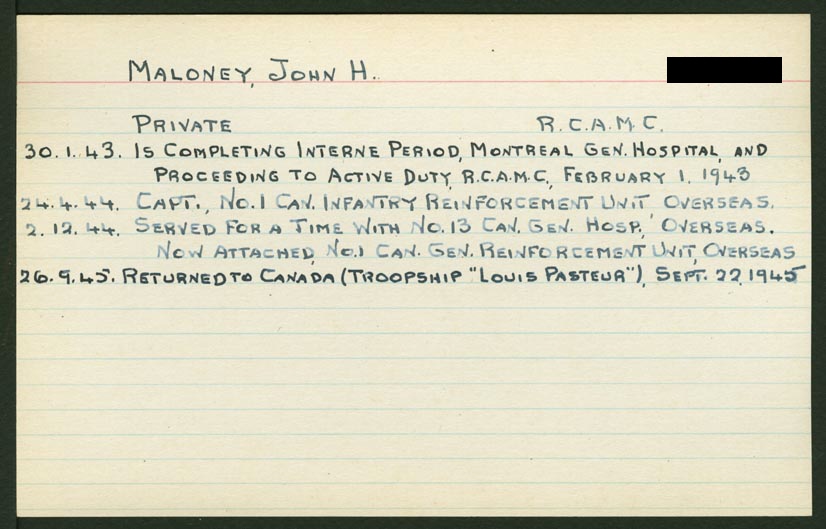 MALONEY, JOHN H.
PRIVATE R.C.A.M.C.
30.1.43. IS COMPLETING INTERNE PERIOD, MONTREAL GEN. HOSPITAL, AND
PROCEEDING TO ACTIVE DUTY, R.C.A.M.C., FEBRUARY 1, 1943
24.4.44. CAPT., NO.1 CAN. INFANTRY REINFORCEMENT UNIT OVERSEAS.
2.12.44. SERVED FOR A TIME WITH NO.13 CAN. GEN. HOSP., OVERSEAS.
NOW ATTACHED, NO.1 CAN. GEN. REINFORCEMENT UNIT, OVERSEAS
26.9.45. RETURNED TO CANADA (TROOPSHIP "LOUIS PASTEUR"), SEPT. 22, 1945